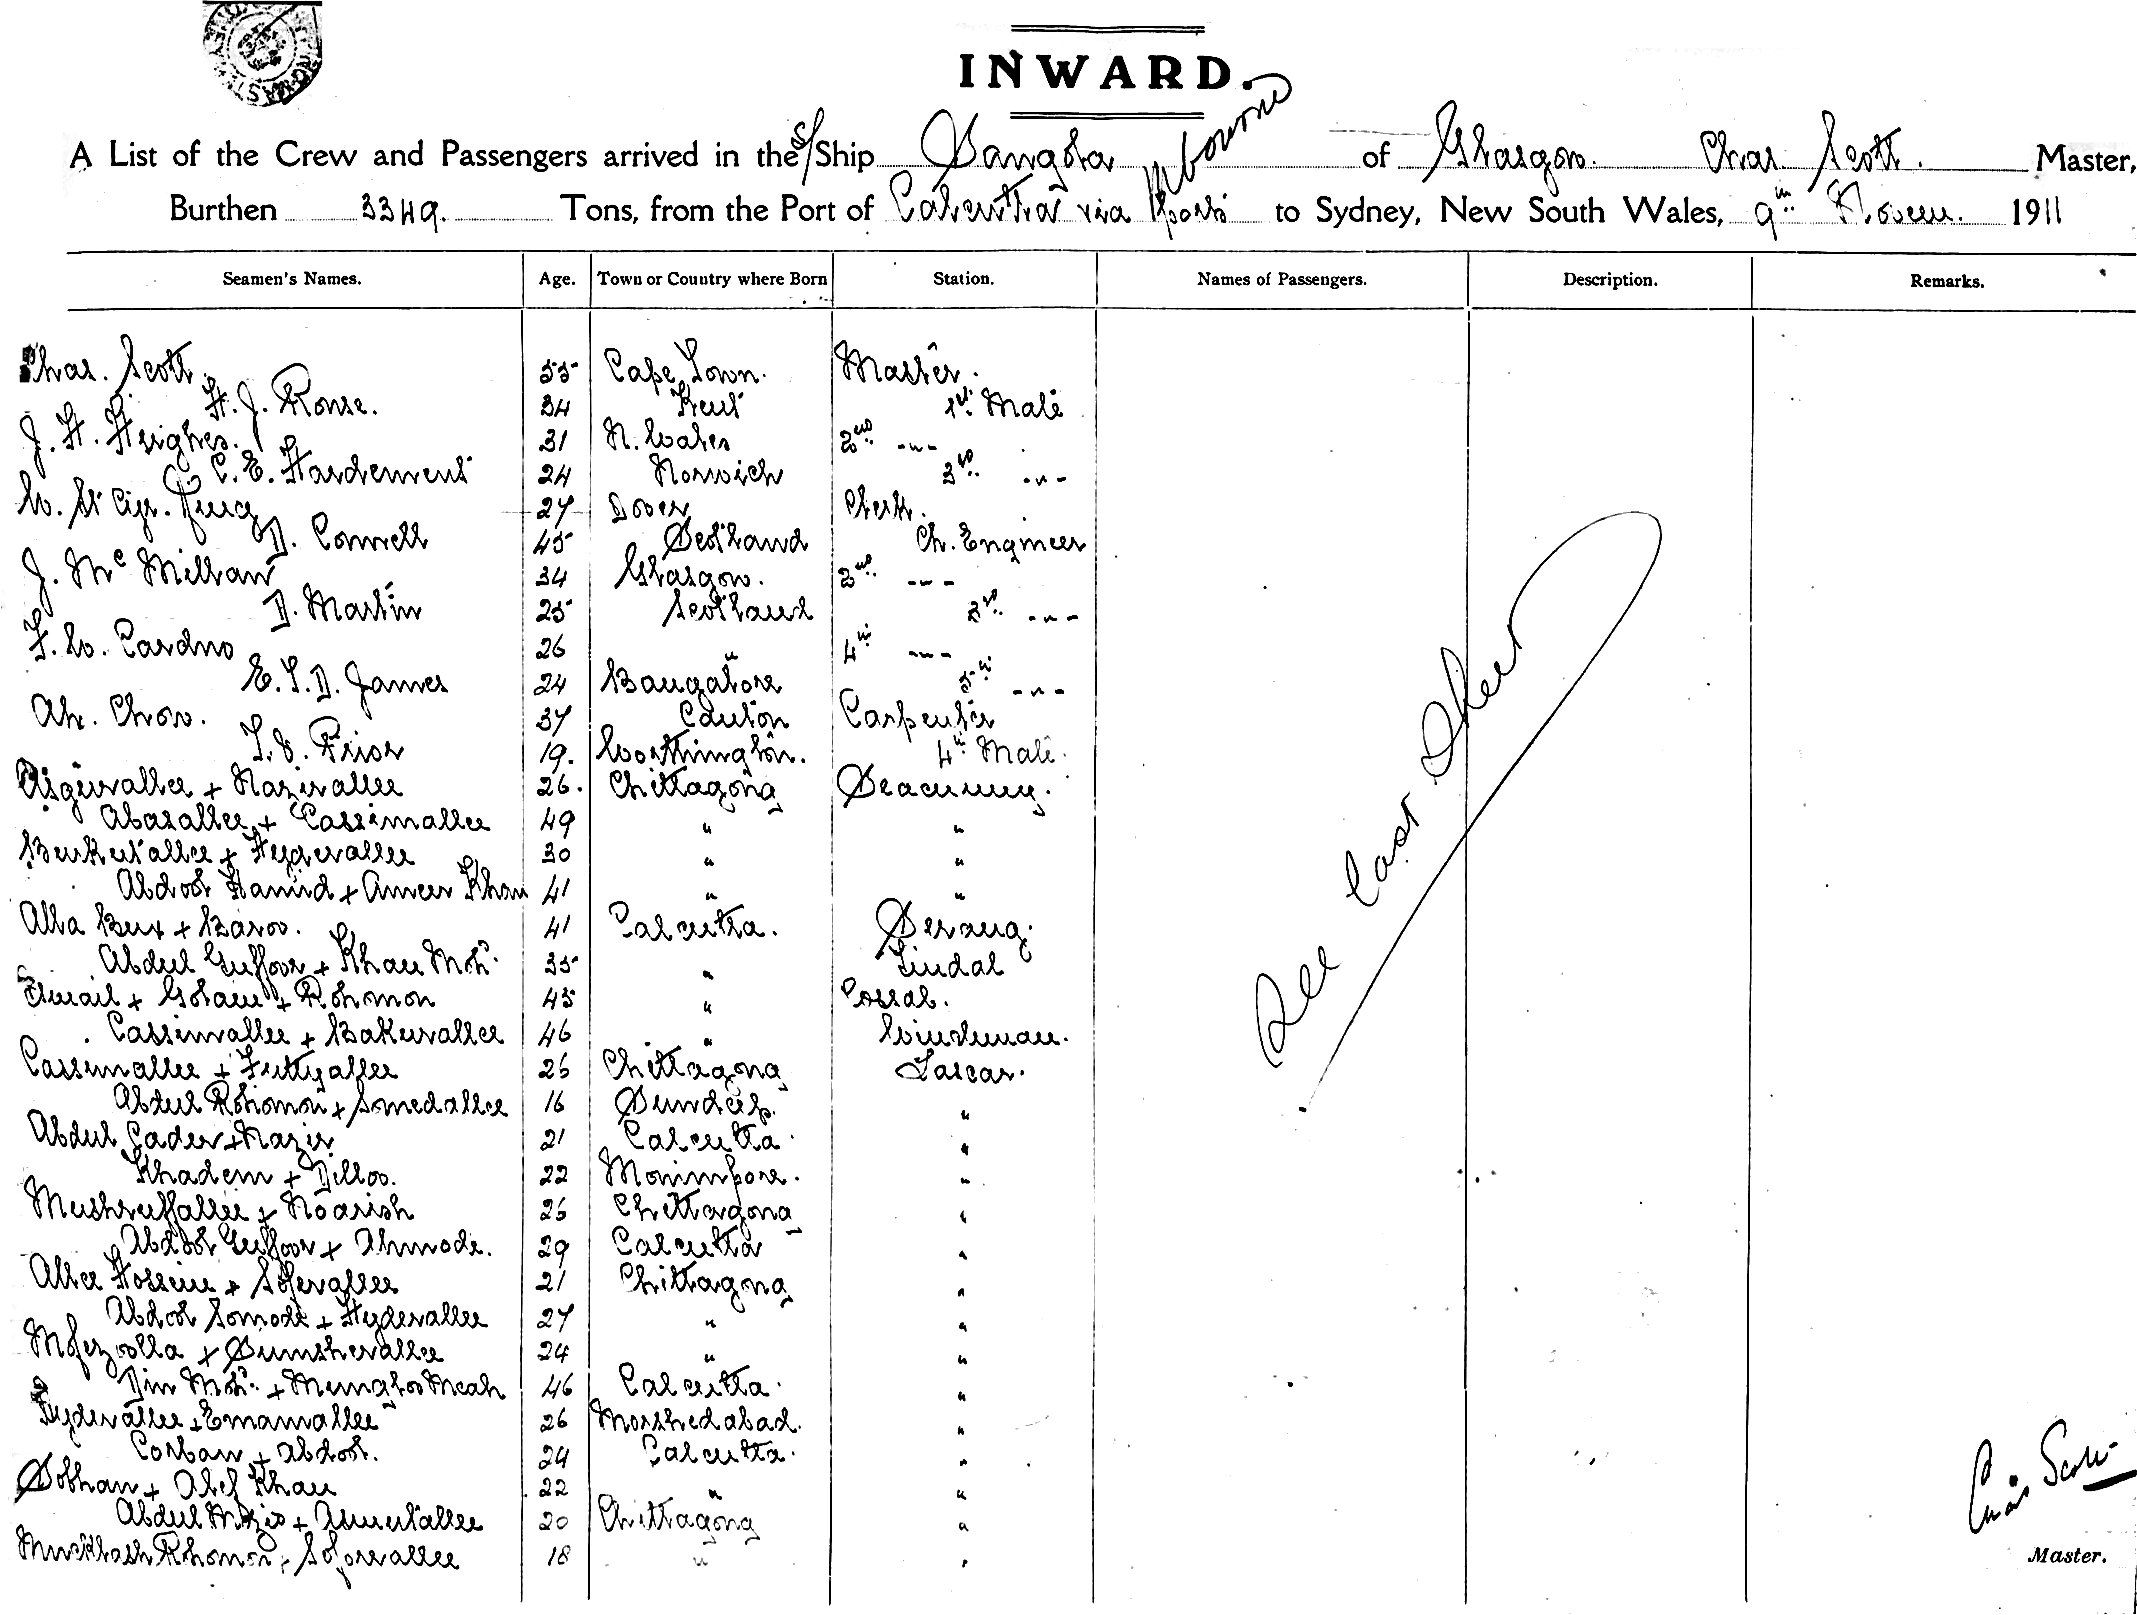 INWARD.
A List of the Crew and Passengers arrived in the S/Ship Sangola of Glasgow. Chas. Scott. Master,
Burthen 3349. Tons, from the Port of Calcutta via Mbourne ports to Sydney, New South Wales, 9th Novem. 1911
Seamen's Names. Age. Town or Country where Born Station. Names of Passengers. Description. Remarks.
Chas. Scott 55 Cape Town. Master.
H. J. Rouse. 34 Kent 1st Mate
J. H. Hughes. 31 N. Wales 2nd -"-
C. E. Hardement 24 Norwich 3rd -"-
W. St 27 Dover Clerk.
D. Connell 45 Scotland Ch. Engineer
J. Mc Millan 34 Glasgow. 2nd -"-
D. Martin 25 Scotland 3rd -"-
F. W. Cardno 26 " 4th -"-
E. T. D. James 24 Bangalore 5th -"-
Ah. Chow. 37 Canton Carpenter
T. S. Prior 19. Worthington. 4th Mate.
Asgurallee + Nazirallee 26. Chittagong Seacunny.
Abasallee + Cassimallee 49 " "
Burkutallee + Hyderallee 30 " "
Abdool Hamid + Ameer Khan 41 " "
Alla Bux + Baroo. 41 Calcutta. Serang.
Abdul Guffoor + Khan Moh. 35 " Tindal
Ismail + Golam + Rohmon 45 " Cossab.
Cassimallee + Bakurallee 46 " Winchman.
Cassimallee + Futtyallee 26 Chittagong Lascar.
Abdul Rohomon + Somedallee 16 Sundeep. "
Abdul Cader + Nazir 21 Calcutta. "
Khadem + Dilloo. 22 Monimpore. "
Mushruffallee + Noarish 26 Chittagong "
Abdool Guffoor + Ahmode. 29 Calcutta "
Allee Hossein + Soferallee 21 Chittagong "
Abdool Somode + Hyderallee 27 " "
Mofezoolla + Sumsherallee 24 " "
Din Moh. + Mungloo Meah 46 Calcutta. "
Hyderallee + Emamallee 26 Morshedabad. "
Corban + Abdool. 24 Calcutta. "
Sobhan + Alef Khan 22 " "
Abdul + Amutallee 20 Chittagong "
Rohomon + Soforallee 18 " "
See last Sheet
Chas Scott
Master.